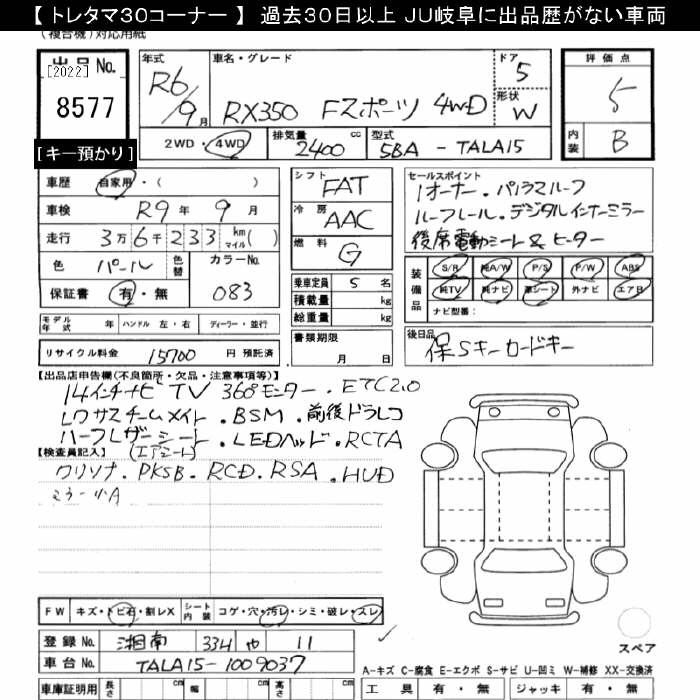 【 トレタマ30コーナー 】 過去30日以上 JU岐阜に出品歴がない車両
(複合機)対応用紙
出品No. [2022]
8577
[キー預かり]
年式 R6/9月
車名・グレード RX350 Fスポーツ 4WD
ドア 5
形状 W
2WD・4WD 排気量 2400 cc 型式 5BA - TALA15
評価点 5
内装 B
車歴 自家用・( )
車検 R9年 9月
走行 3万6千233 km マイル( )
色 パール 色替 カラーNo. 083
保証書 有・無
シフト FAT
冷房 AAC
燃料 G
乗車定員 5 名
積載量 kg
総重量 kg
書類期限
月 日
セールスポイント
1オーナー・パノラマルーフ
ルーフレール・デジタルインナーミラー
後席電動シート&ヒーター
装備品 S/R 純A/W P/S P/W ABS
純TV 純ナビ 革シート 外ナビ エアB
ナビ型番:
モデル年式 年 ハンドル 左・右 ディーラー・並行
リサイクル料金 15700 円 預託済
後日品 保Sキーカードキー
【出品店申告欄(不良箇所・欠品・注意事項等)】
14インチナビTV 360°モニター・ETC2.0
レクサスチームメイト・BSM・前後ドラレコ
ハーフレザーシート・LEDヘッド・RCTA
(エアシート)
【検査員記入】
クリソナ・PKSB・RCD・RSA・HUD
ミラー小A
FW キズ・トビ石・割レX シート内装 コゲ・穴・汚レ・シミ・破レ・スレ
登録No. 湘南 334 や 11
車台No. TALA15-1009037
車庫証明用 長さ cm 幅 cm 高さ cm
スペア
A-キズ C-腐食 E-エクボ S-サビ U-凹ミ W-補修 XX-交換済
工具 有・無 ジャッキ 有・無